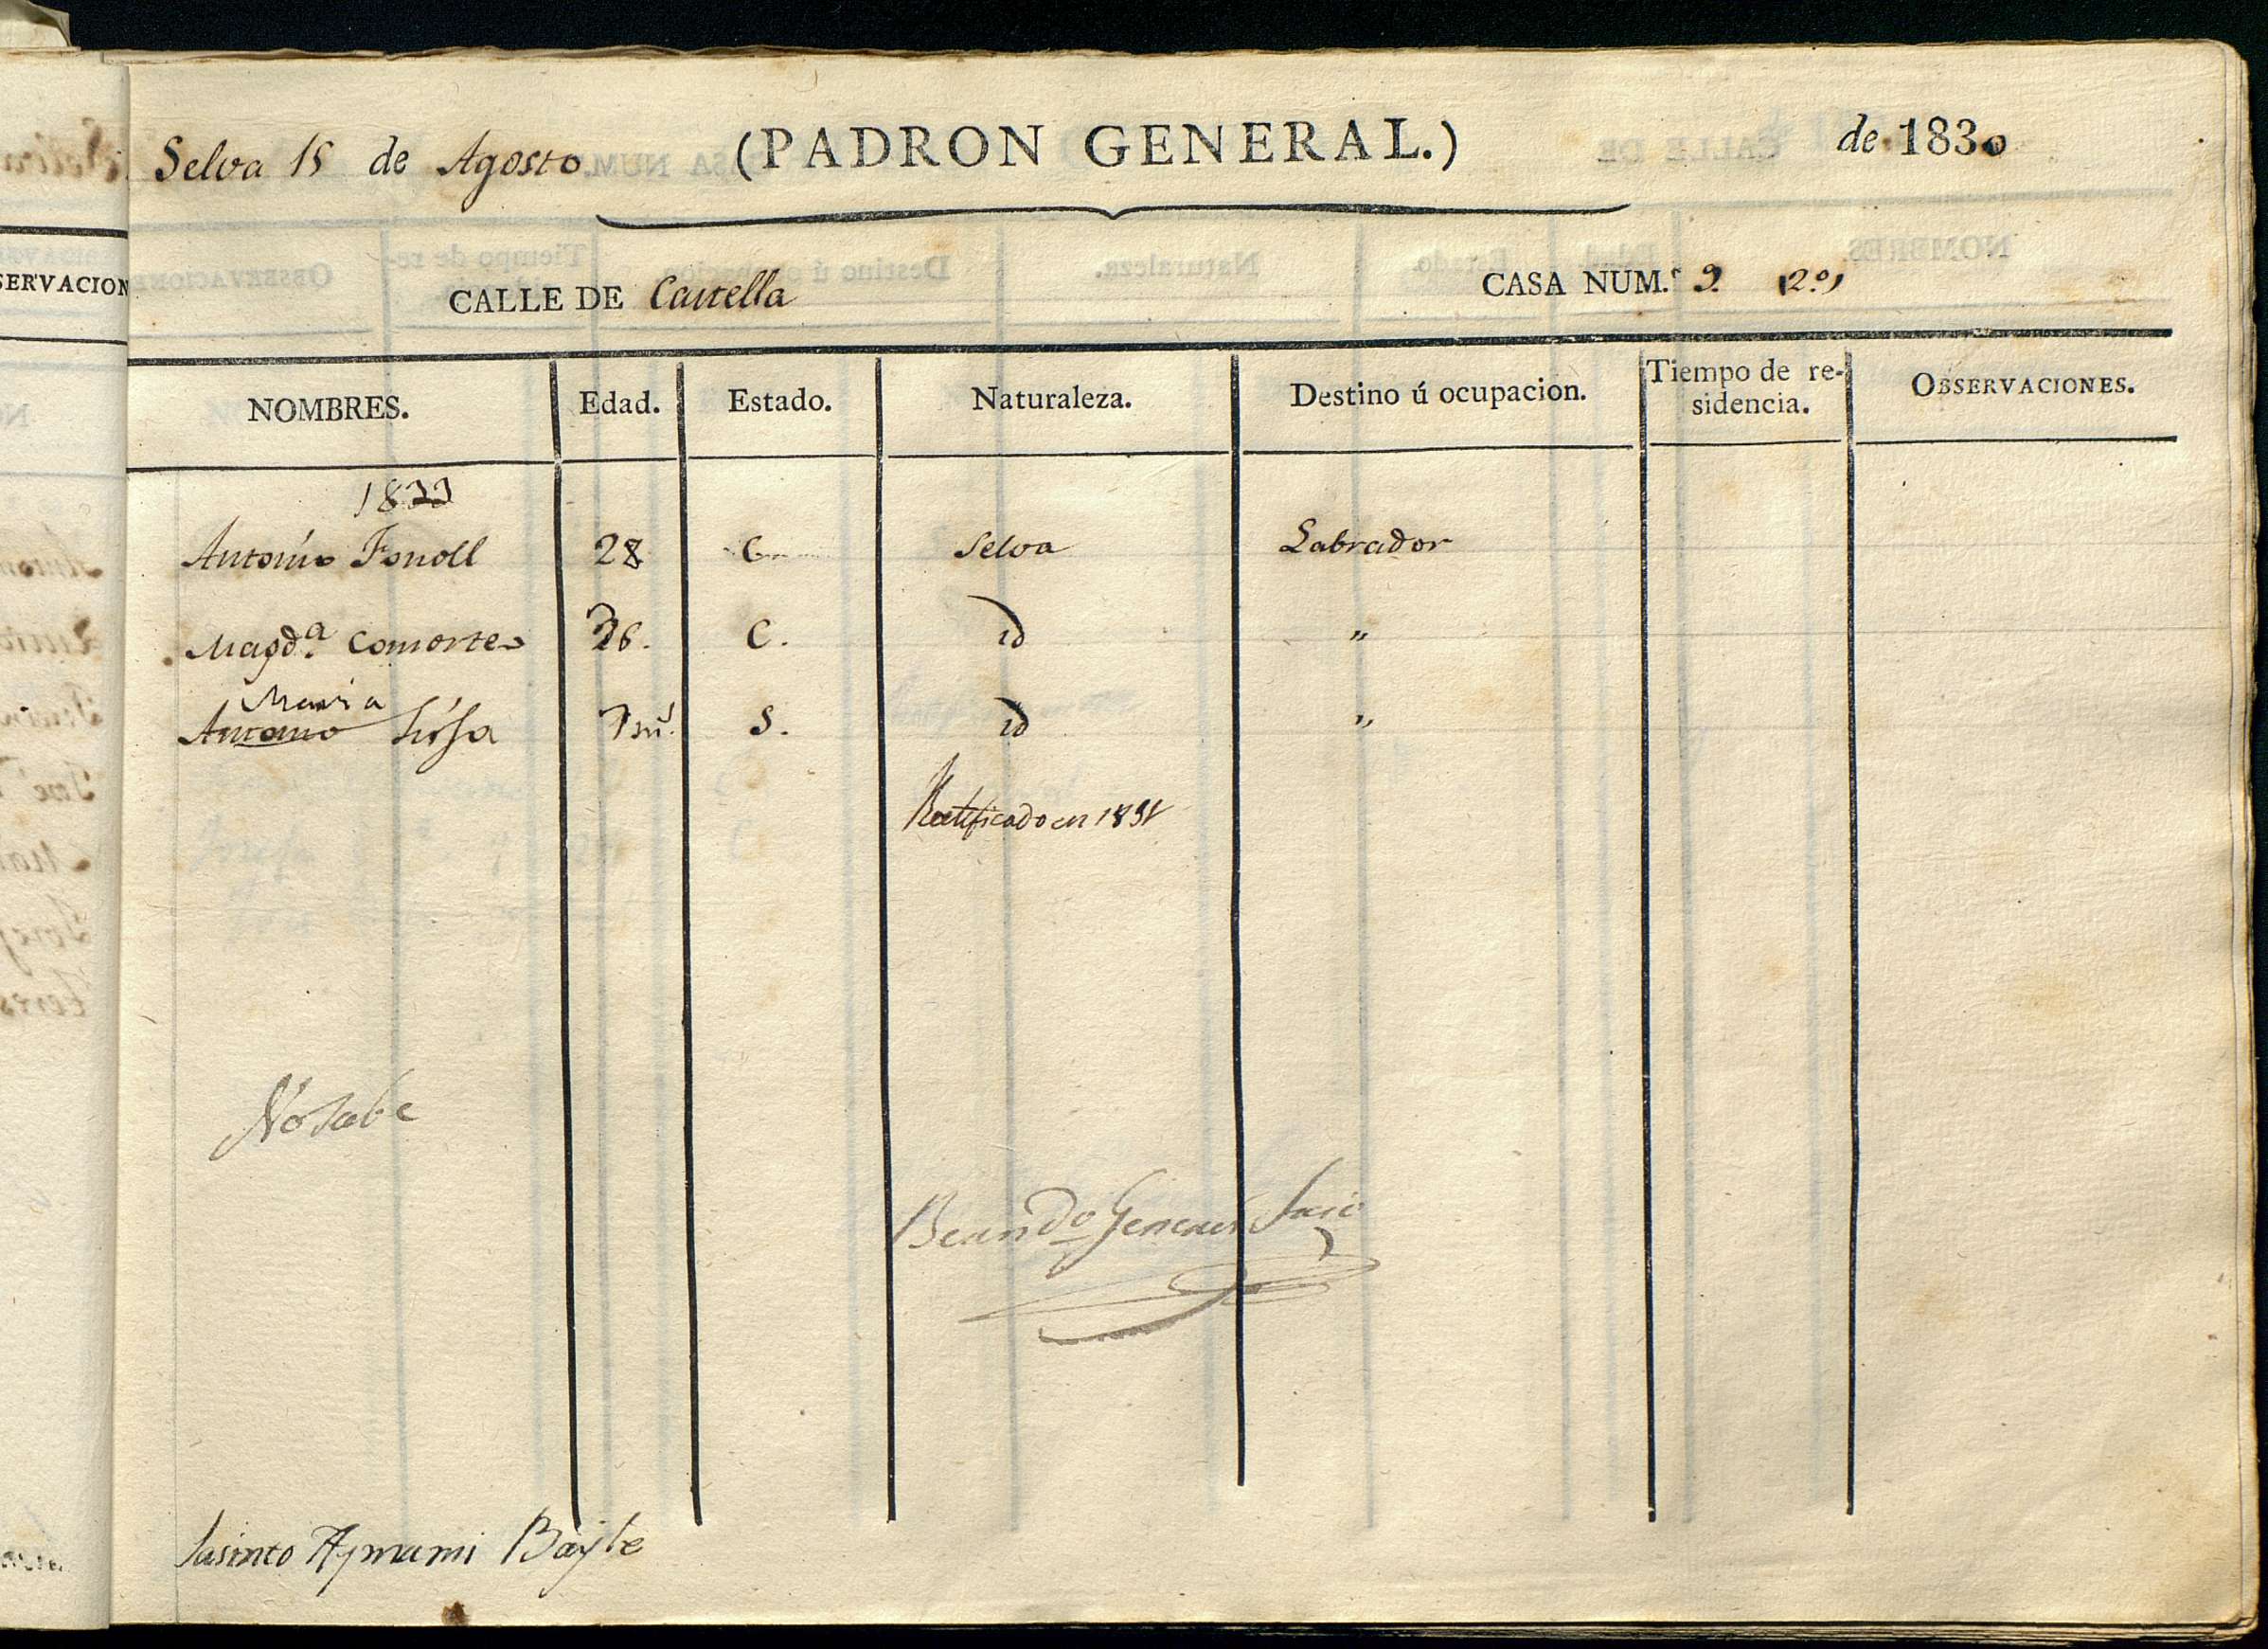 Selva 15 de Agosto (PADRON GENERAL.) de 1830
CALLE DE Castella CASA NUM.ᵒ 9. 2.º
NOMBRES. Edad. Estado. Naturaleza. Destino ú ocupacion. Tiempo de re-
sidencia. OBSERVACIONES.
1833
Antonio Fonoll 28 C Selva Labrador
Magd.ª Consortes 36. C. id "
Maria
Antonio hija S. id "
Rectificado en 1831
No Sabe
Jasinto Aymami Bayle
SERVACION